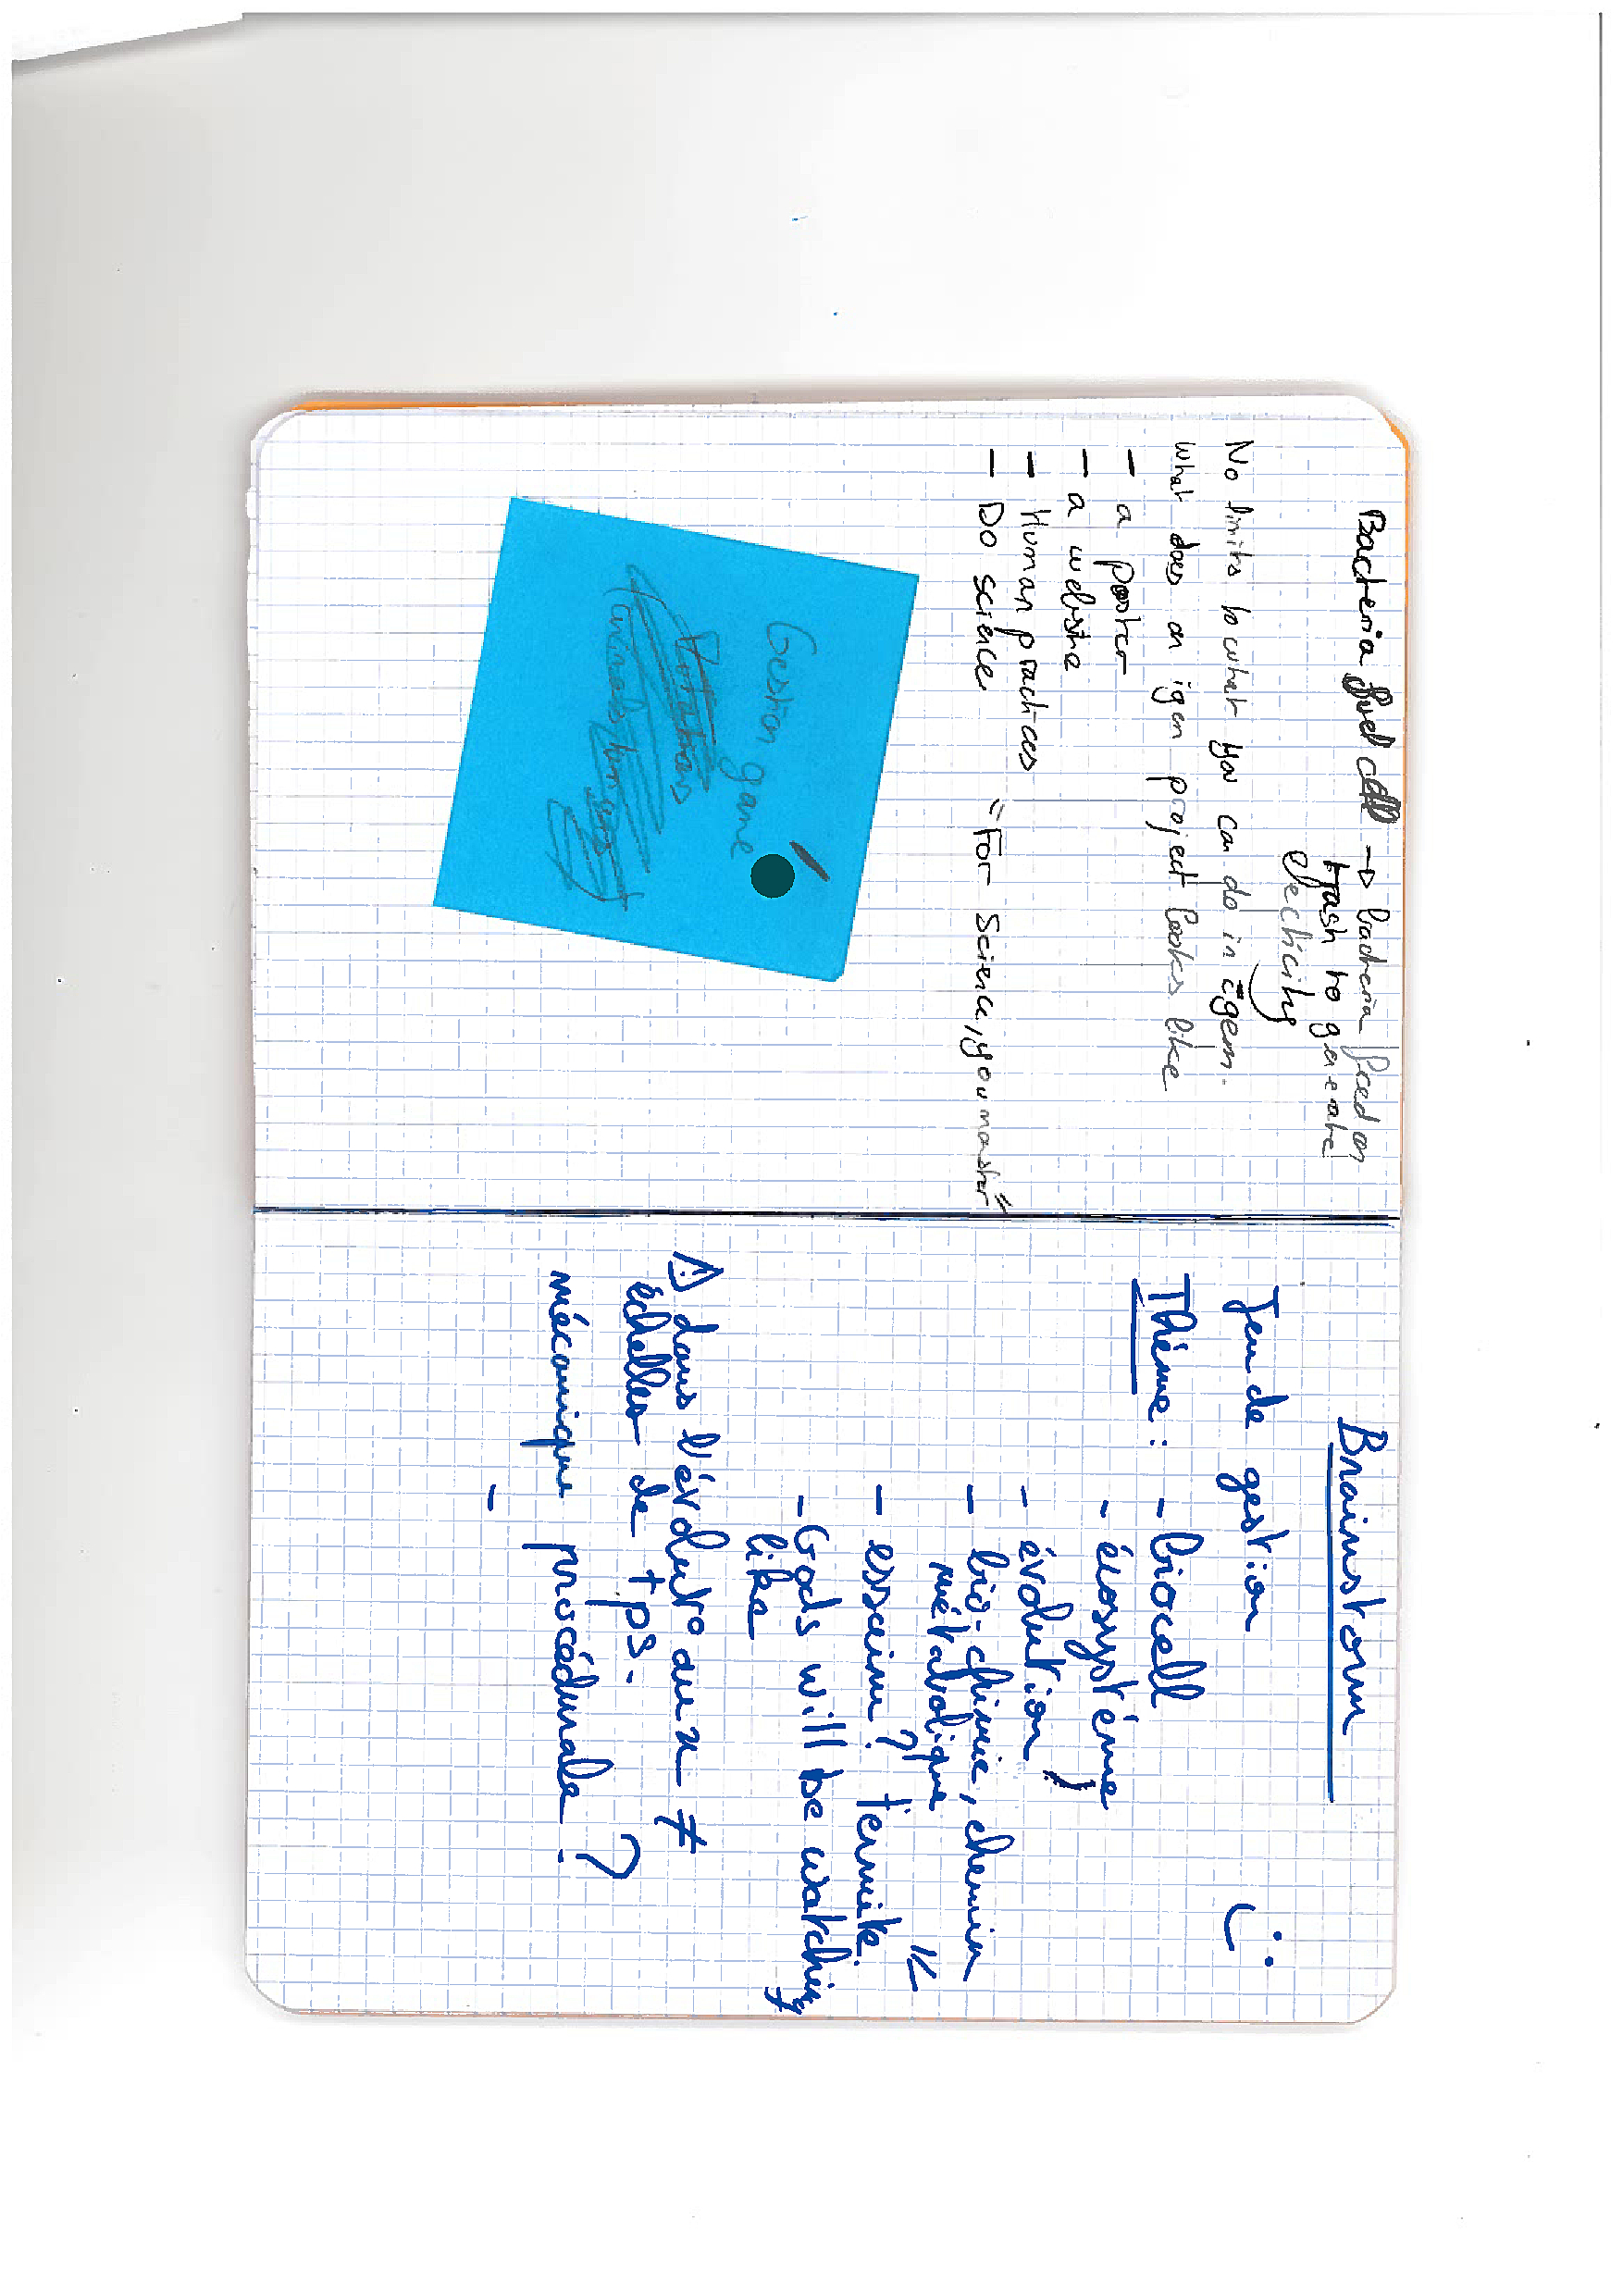 Bacteria fuel cell → bacteria feed on
trash to generate
electricity
No limits to what you can do in igem.
what does an igem project looks like
- a poster
- a website
- Human practices
- Do science "For Science, you monster"
Gestion game
Brainstorm
Jeu de gestion :)
Thème : - biocell
- écosystème
- évolution
- bio-chimie, chemin
métabolique
- essaim ? termite.
- Gods will be watching
like
⚠ dans l'évolut° aux ≠
échelles de tps.
mécanique procédurale ?
-